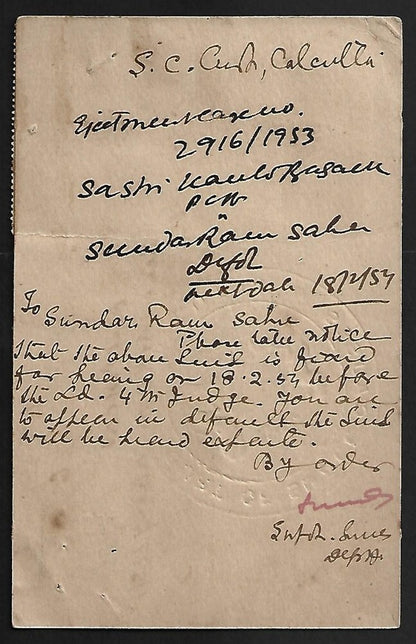 S. C. Court, Calcutta
Ejectment Case no.
2916/1953
Sashi Kanto Basack
Plff
vs
Sundar Ram Sahu
Deft
next date 18/2/54
To
Sundar Ram Sahu
Please take notice
that the above Suit is fixed
for hearing on 18.2.54 before
the Ld. 4th Judge. You are
to appear in default the Suit
will be heard exparte.
By order
Suptdt. Suits
Deptt.